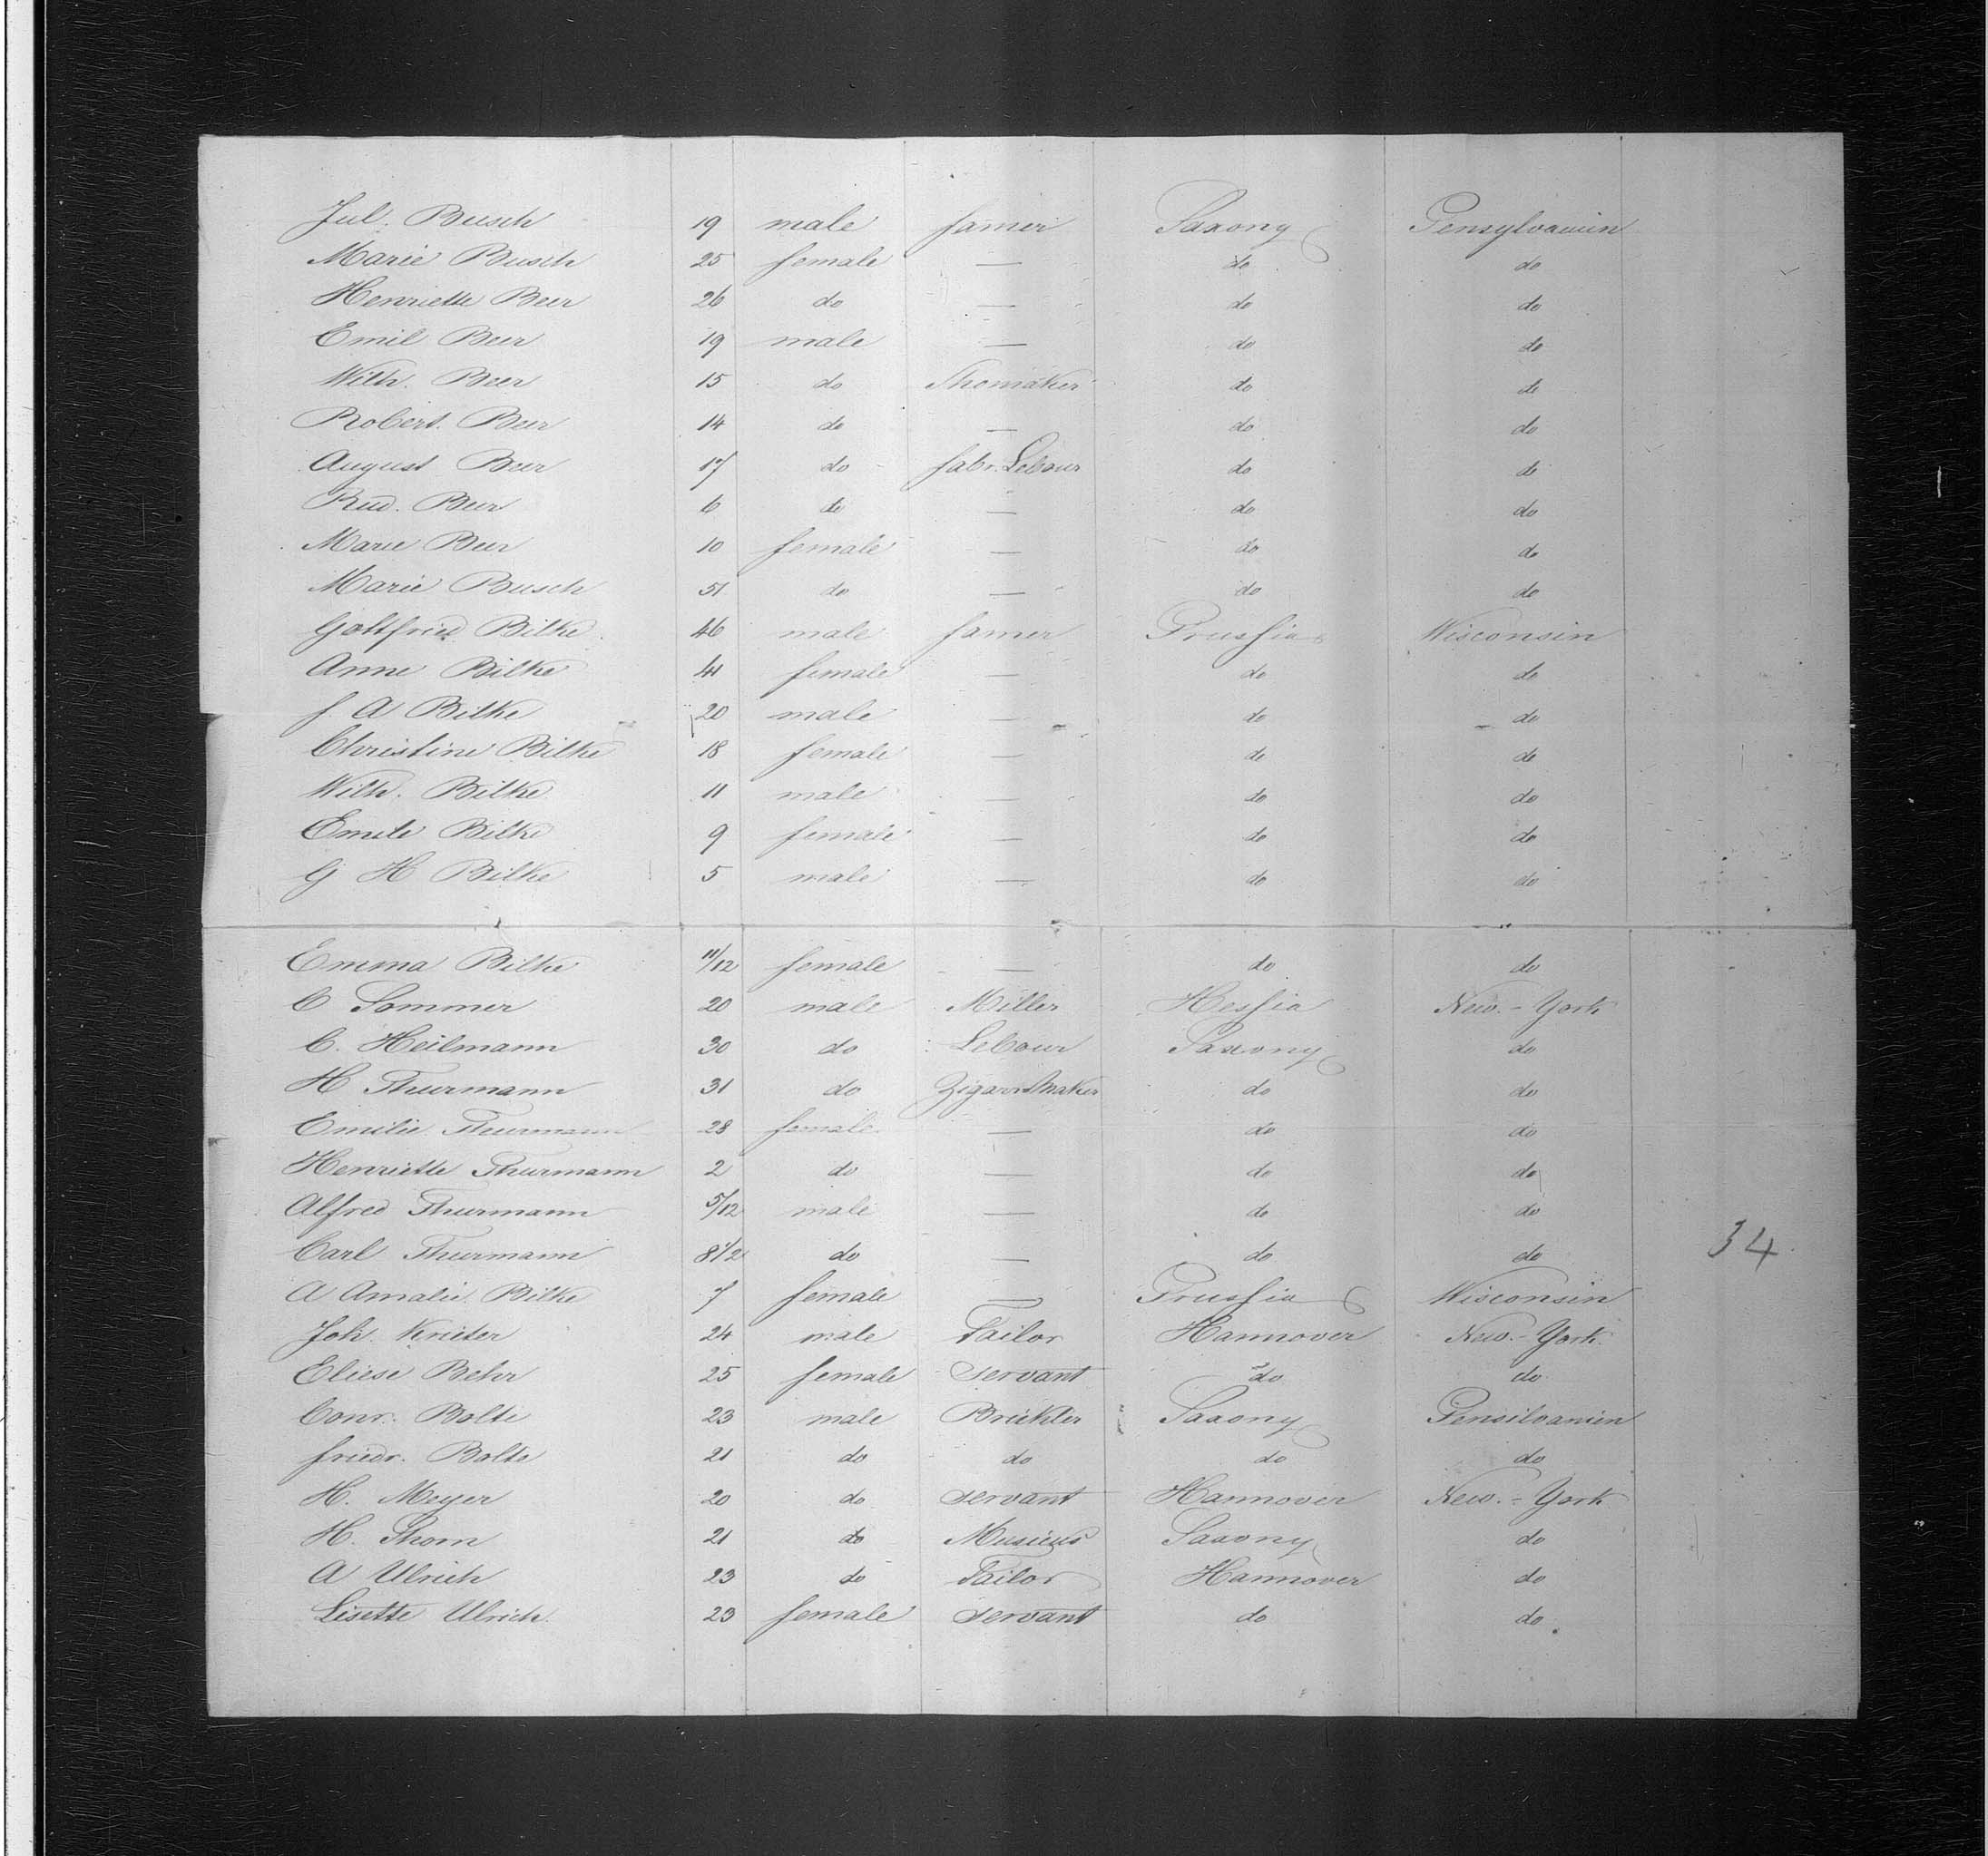 Jul. Busch 19 male famer Saxony Pensylvanien
Marie Busch 25 female — do do
Henriette Beer 26 do — do do
Emil Beer 19 male — do do
Wilh. Beer 15 do Shomaker do do
Robert. Beer 14 do — do do
August Beer 17 do fabr. Lebour do do
Rud. Beer 6 do — do do
Marie Beer 10 female — do do
Marie Busch 51 do — do do
Gottfried Bilke 46 male famer Prussia Wisconsin
Anne Bilke 41 female — do do
f. A Bilke 20 male — do do
Christine Bilke 18 female — do do
Wilh. Bilke 11 male — do do
Emile Bilke 9 female — do do
G H Bilke 5 male — do do
Emma Bilke 11/12 female — do do
C Sommer 20 male Miller Hessia New.-York
C. Heilmann 30 do Lebour Saxony do
H Thurmann 31 do Zigarrnmaker do do
Emilie Thurmann 28 female — do do
Henriette Thurmann 2 do — do do
Alfred Thurmann 5/12 male — do do
Carl Thurmann 8 1/2 do — do do 34
A Amalie Bilke 7 female — Prussia Wisconsin
Joh. 24 male Tailor Hannover New.-York.
Eliese Behr 25 female Servant do do
Conr. Bolte 23 male Brickler Saxony Pensilvanien
friedr. Bolte 21 do do do do
H. Meyer 20 do Servant Hannover New.-York
H. Thom 21 do Musicus Saxony do
A Ulrich 23 do Tailor Hannover do
Lisette Ulrich. 23 female Servant do do